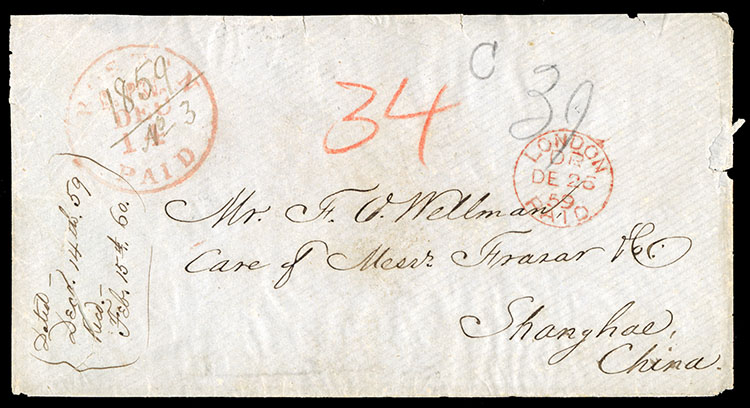 1859
No 3
PAID
34
C
39
LONDON
DE 25
59
PAID
Mr. F. O. Wellman
Care of Messrs. Frazar & Co.
Shanghae,
China.
Dated
Decr. 14th. 59
Recd.
Feb. 15th. 60.